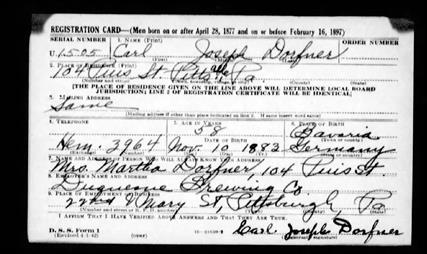 REGISTRATION CARD—(Men born on or after April 28, 1877 and on or before February 16, 1897)
SERIAL NUMBER 1. NAME (Print) ORDER NUMBER
U 1505 Carl Joseph Dorfner
2. PLACE OF RESIDENCE (Print)
104 Pius St. Pittsbgh Pa.
[THE PLACE OF RESIDENCE GIVEN ON THE LINE ABOVE WILL DETERMINE LOCAL BOARD
JURISDICTION; LINE 2 OF REGISTRATION CERTIFICATE WILL BE IDENTICAL]
3. MAILING ADDRESS
Same
[Mailing address if other than place indicated on line 2. If same insert word same]
4. TELEPHONE 5. AGE IN YEARS 6. PLACE OF BIRTH
58 Bavaria
DATE OF BIRTH
Hem. 3964 Nov. 10 1883 Germany
7. NAME AND ADDRESS OF PERSON WHO WILL ALWAYS KNOW YOUR ADDRESS
Mrs. Martha Dorfner, 104 Pius St.
8. EMPLOYER'S NAME AND ADDRESS
Duquesne Brewing Co.
9. PLACE OF EMPLOYMENT OR BUSINESS
22nd & Mary St, Pittsburgh, Pa
I AFFIRM THAT I HAVE VERIFIED ABOVE ANSWERS AND THAT THEY ARE TRUE.
D. S. S. Form 1
(Revised 4-1-42) (over)
Carl Joseph Dorfner